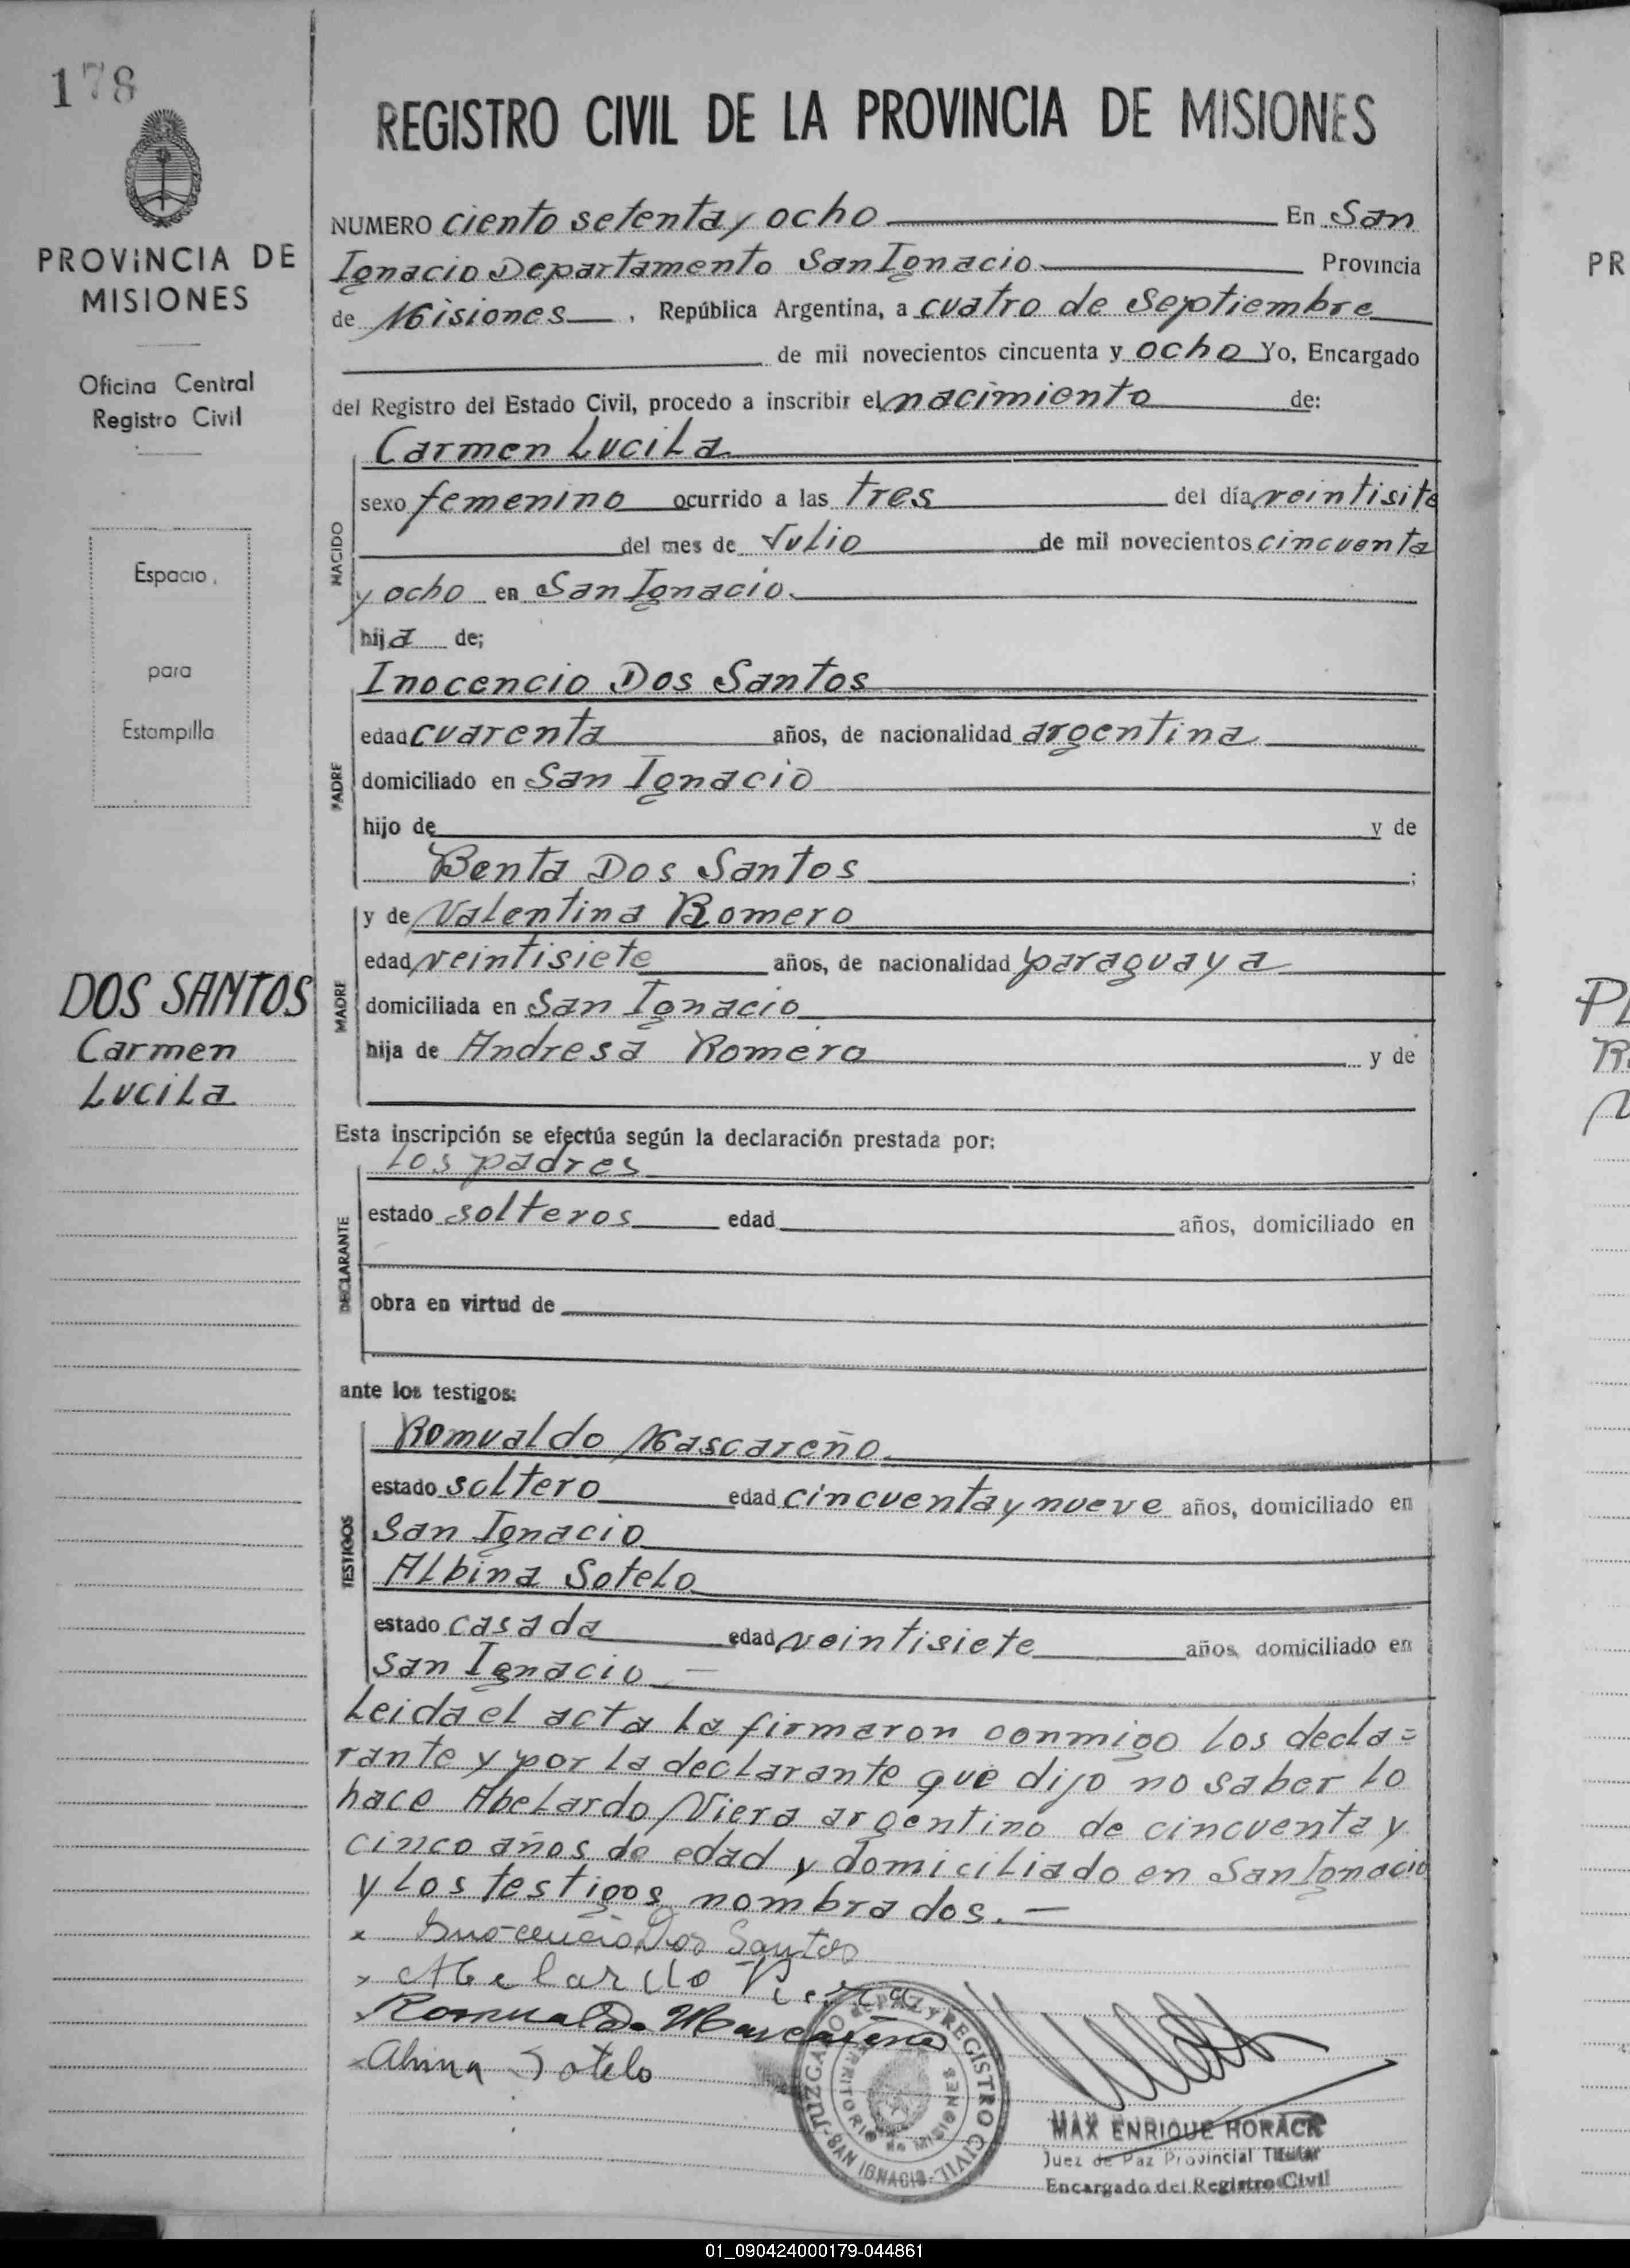 178
PROVINCIA DE
MISIONES
Oficina Central
Registro Civil
Espacio
para
Estampilla
DOS SANTOS
Carmen
Lucila
REGISTRO CIVIL DE LA PROVINCIA DE MISIONES
NUMERO ciento setenta y ocho En San
Ignacio Departamento San Ignacio Provincia
de Misiones, República Argentina, a cuatro de Septiembre
de mil novecientos cincuenta y ocho Yo, Encargado
del Registro del Estado Civil, procedo a inscribir el nacimiento de:
NACIDO
Carmen Lucila
sexo femenino ocurrido a las tres del día veintisite
del mes de Julio de mil novecientos cincuenta
y ocho en San Ignacio.
hija de;
PADRE
Inocencio Dos Santos
edad cuarenta años, de nacionalidad argentina
domiciliado en San Ignacio
hijo de y de
Benta Dos Santos ;
MADRE
y de Valentina Romero
edad veintisiete años, de nacionalidad paraguaya
domiciliada en San Ignacio
hija de Andresa Romero y de
Esta inscripción se efectúa según la declaración prestada por:
DECLARANTE
los padres
estado solteros edad años, domiciliado en
obra en virtud de
ante los testigos:
TESTIGOS
Romualdo Mascareño
estado soltero edad cincuenta y nueve años, domiciliado en
San Ignacio
Albina Sotelo
estado casada edad veintisiete años, domiciliado en
San Ignacio —
Leida el acta la firmaron conmigo los decla=
rante y por la declarante que dijo no saber lo
hace Abelardo Viera argentino de cincuenta y
cinco años de edad y domiciliado en San Ignacio
y los testigos nombrados. —
x Inocencio Dos Santos
x Abelardo Viera
x Romualdo Mascareño
x Alvina Sotelo
JUZGADO de PAZ y REGISTRO CIVIL - SAN IGNACIO -
TERRITORIO de MISIONES
MAX ENRIQUE HORACK
Juez de Paz Provincial Titular
Encargado del Registro Civil
PR
PL
01_090424000179-044861